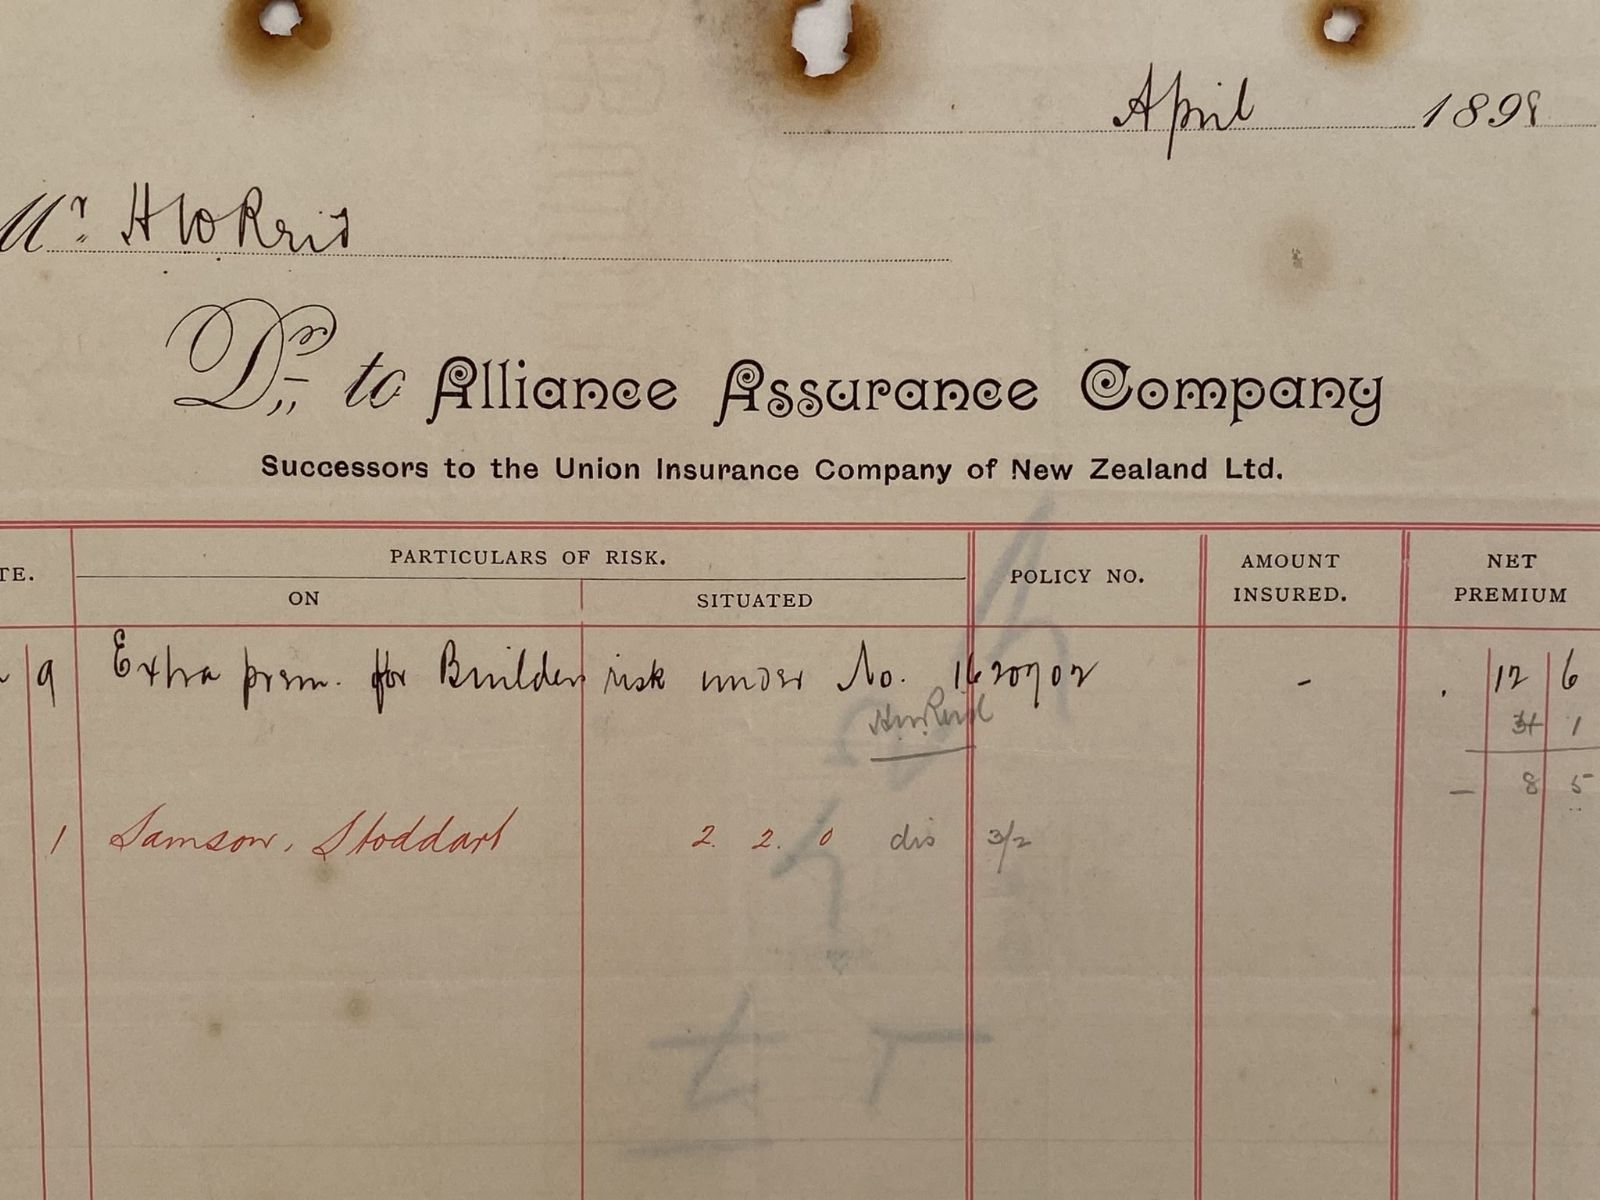 April 1898
Mr. H W Reid
Dr. to Alliance Assurance Company
Successors to the Union Insurance Company of New Zealand Ltd.
TE. PARTICULARS OF RISK. POLICY NO. AMOUNT INSURED. NET PREMIUM
ON SITUATED
9 Extra prem. for Builders risk under No. 1620702 - . 12 6
HW Reid 1
— 8 5
1 Samson, Stoddart 2. 2. 0 dis 3/2